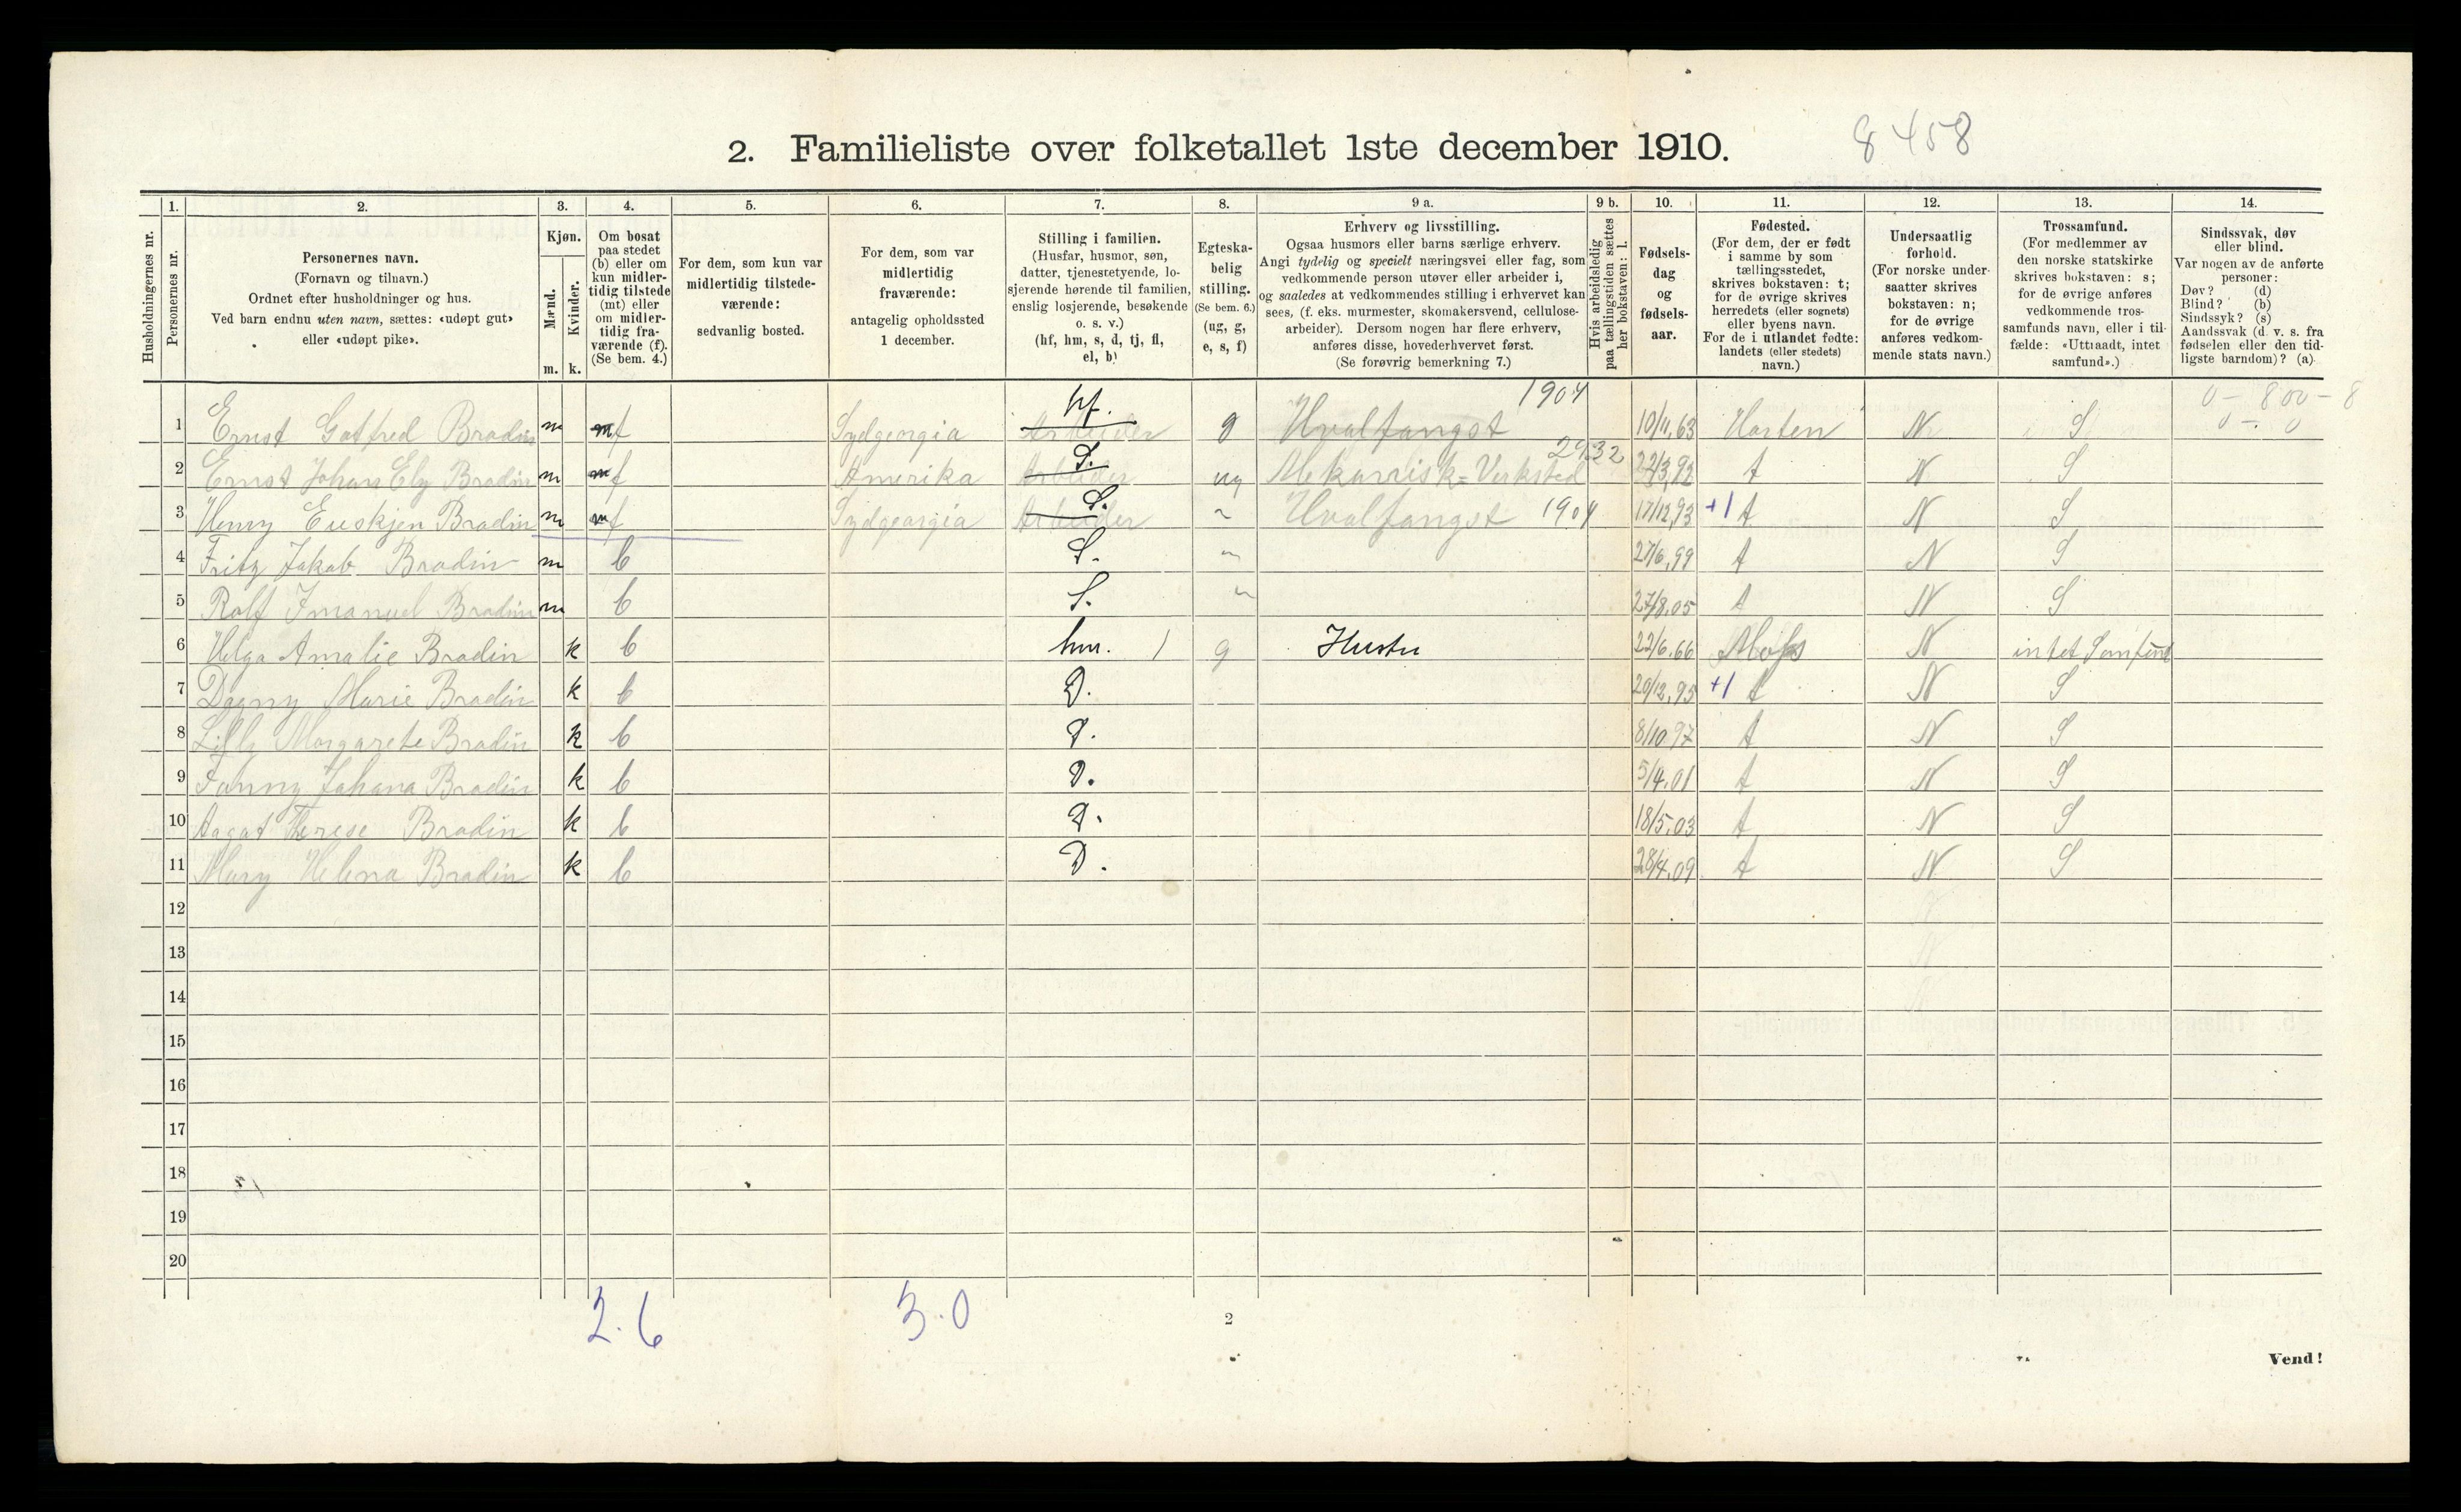 8458
2. Familieliste over folketallet 1ste december 1910.
1. 2. 3. 4. 5. 6. 7. 8. 9 a. 9 b. 10. 11. 12. 13. 14.
Husholdningernes nr.
Personernes nr.
Personernes navn.
(Fornavn og tilnavn.)
Ordnet efter husholdninger og hus.
Ved barn endnu uten navn, sættes: «udøpt gut»
eller «udøpt pike».
Kjøn.
Mænd.
Kvinder.
m. k.
Om bosat
paa stedet
(b) eller om
kun midler-
tidig tilstede
(mt) eller
om midler-
tidig fra-
værende (f).
(Se bem. 4.)
For dem, som kun var
midlertidig tilstede-
værende:
sedvanlig bosted.
For dem, som var
midlertidig
fraværende:
antagelig opholdssted
1 december.
Stilling i familien.
(Husfar, husmor, søn,
datter, tjenestetyende, lo-
sjerende hørende til familien,
enslig losjerende, besøkende
o. s. v.)
(hf, hm, s, d, tj, fl,
el, b)
Egteska-
belig
stilling.
(Se bem. 6.)
(ug, g,
e, s, f)
Erhverv og livsstilling.
Ogsaa husmors eller barns særlige erhverv.
Angi tydelig og specielt næringsvei eller fag, som
vedkommende person utøver eller arbeider i,
og saaledes at vedkommendes stilling i erhvervet kan
sees, (f. eks. murmester, skomakersvend, cellulose-
arbeider). Dersom nogen har flere erhverv,
anføres disse, hovederhvervet først.
(Se forøvrig bemerkning 7.)
Hvis arbeidsledig
paa tællingstiden sættes
her bokstaven: l.
Fødsels-
dag
og
fødsels-
aar.
Fødested.
(For dem, der er født
i samme by som
tællingsstedet,
skrives bokstaven: t;
for de øvrige skrives
herredets (eller sognets)
eller byens navn.
For de i utlandet fødte:
landets (eller stedets)
navn.)
Undersaatlig
forhold.
(For norske under-
saatter skrives
bokstaven: n;
for de øvrige
anføres vedkom-
mende stats navn.)
Trossamfund.
(For medlemmer av
den norske statskirke
skrives bokstaven: s;
for de øvrige anføres
vedkommende tros-
samfunds navn, eller i til-
fælde: «Uttraadt, intet
samfund».)
Sindssvak, døv
eller blind.
Var nogen av de anførte
personer:
Døv? (d)
Blind? (b)
Sindssyk? (s)
Aandssvak (d. v. s. fra
fødselen eller den tid-
ligste barndom)? (a)
0 - 800 - 8
0 - 0
1 Ernst Gotfred Brodin m f Sydgeorgia hf. Arbeider g Hvalfangst 1904 10/11,63 Horten N S
2 Ernst Johan Ely Brodin m f Amerika S. Arbeider ug Mekanisk=Verksted 2932 22/3,92 t N S
3 Henry Euskjen Brodin m f Sydgeorgia S. Arbeider " Hvalfangst 1904 17/12,93 +1 t N S
4 Fritz Jakob Brodin m b S. " 27/6,99 t N S
5 Rolf Imanuel Brodin m b S. " 27/8.05 t N S
6 Helga Amalie Brodin k b hm. 1 g Hustru 22/6.66 Moss N intet Samfund
7 Dagny Marie Brodin k b D. 20/12,95 +1 t N S
8 Lilly Margarete Brodin k b D. 8/10 97 t N S
9 Fanny Johana Brodin k b D. 5/4.01 t N S
10 Aagat Therese Brodin k b D. 18/5,03 t N S
11 Mary Helena Brodin k b D. 28/4,09 t N S
12
13
14
15
16
17
18
19
20
2. 6 3. 0
2
Vend!